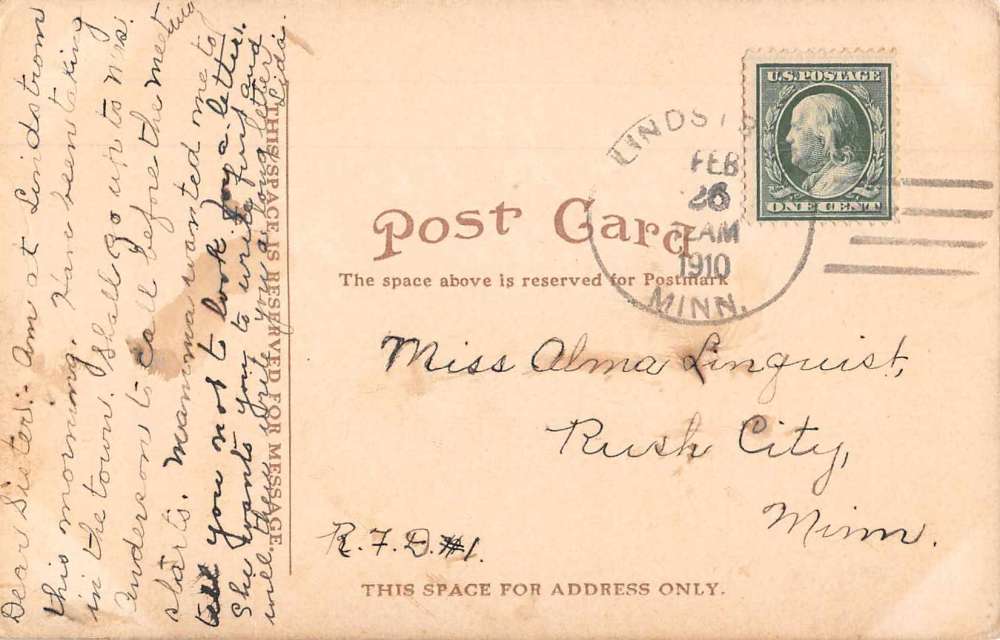 Dear Sister: Am at Lindstrom
this morning. Have been taking
in the town. Shall go up to Mrs.
Anderson to call before the meeting
starts. Mamma wanted me to
tell you not to look for a letter.
She wants you to write first and
will then write you a long letter
Lida.
THIS SPACE IS RESERVED FOR MESSAGE.
U.S. POSTAGE
ONE CENT
LINDST
FEB
26
AM
1910
MINN.
Post Card
The space above is reserved for Postmark
Miss Alma Linquist,
Rush City,
Minn.
R.F.D. #1.
THIS SPACE FOR ADDRESS ONLY.